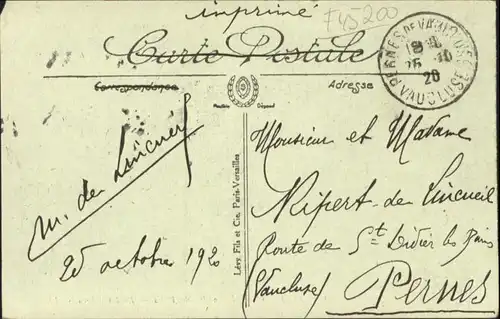 imprimé
F45200
Carte Postale
Correspondance
Adresse
PERNES DE VAUCLUSE
25 -10
20
VAUCLUSE
m. de Lincueil
25 octobre 1920
Lévy, Fils et Cie, Paris-Versailles
Monsieur et Madame
Ripert-de Lincueil
Route de St Didier les Bains
(Vaucluse) Pernes